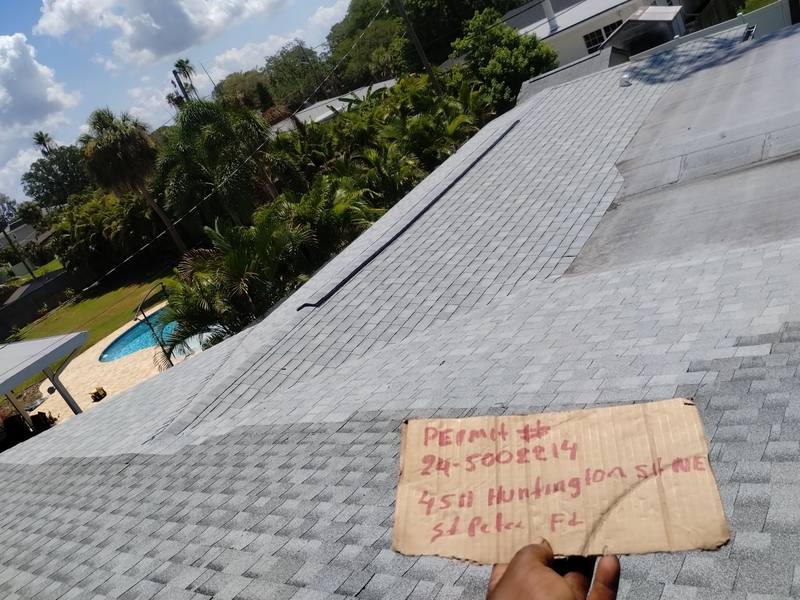 PErmit #
24-5002214
4511 Huntington St NE
St Pete FL